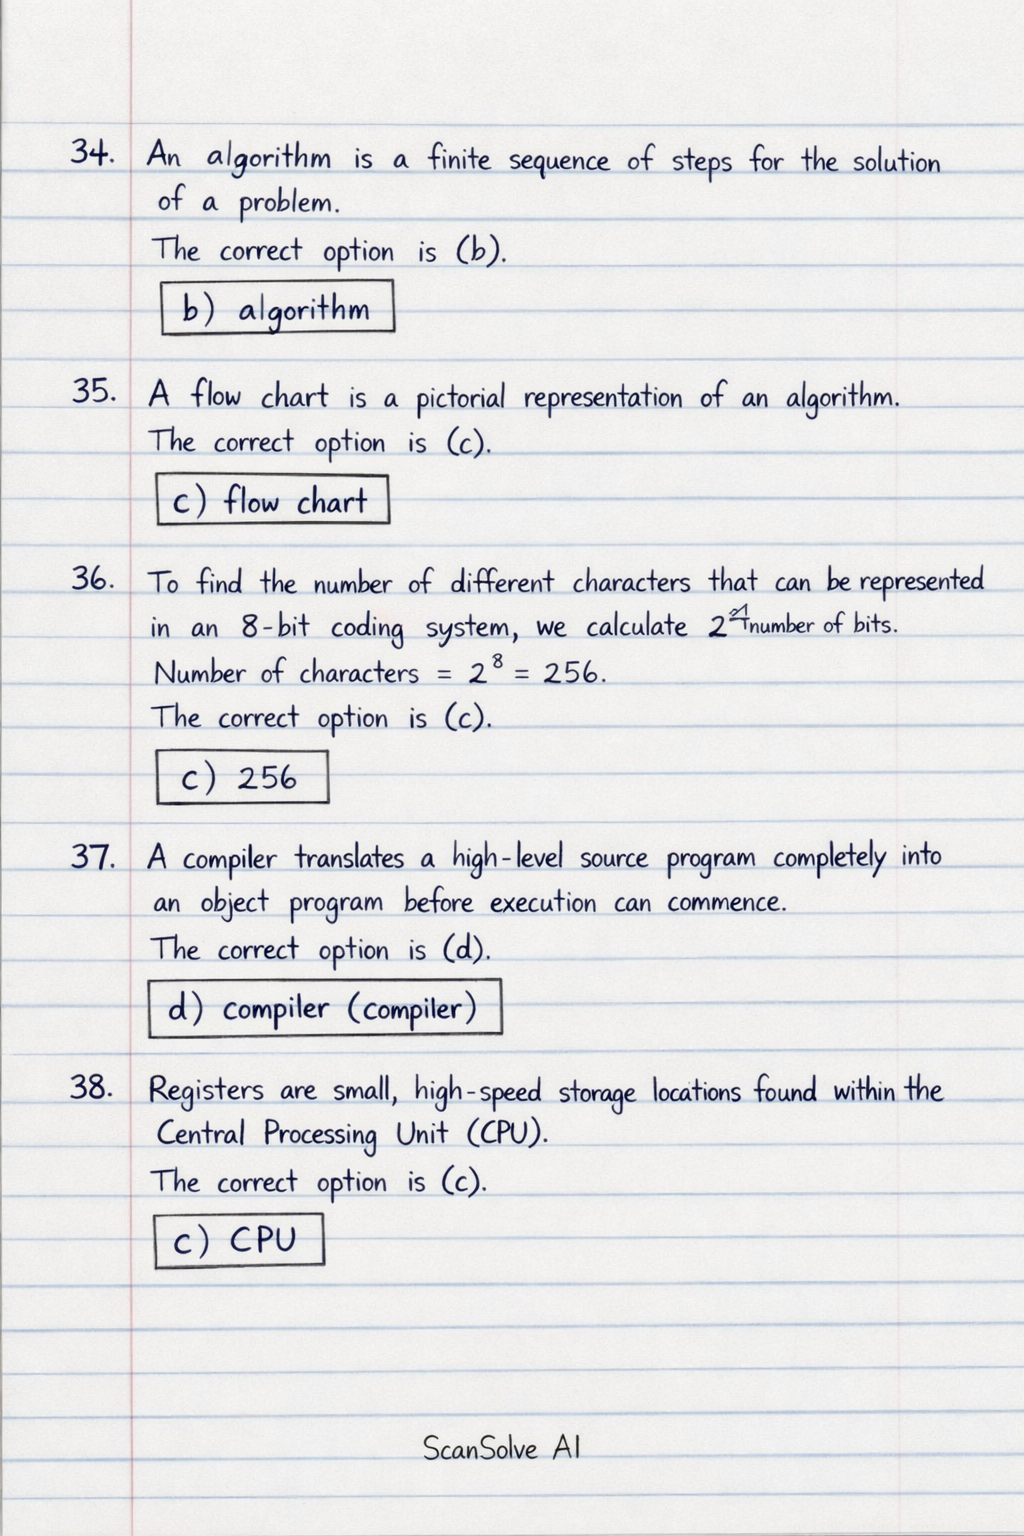 34. An algorithm is a finite sequence of steps for the solution
of a problem.
The correct option is (b).
b) algorithm
35. A flow chart is a pictorial representation of an algorithm.
The correct option is (c).
c) flow chart
36. To find the number of different characters that can be represented
in an 8-bit coding system, we calculate 2 number of bits.
Number of characters = 2⁸ = 256.
The correct option is (c).
c) 256
37. A compiler translates a high-level source program completely into
an object program before execution can commence.
The correct option is (d).
d) compiler (compiler)
38. Registers are small, high-speed storage locations found within the
Central Processing Unit (CPU).
The correct option is (c).
c) CPU
ScanSolve AI